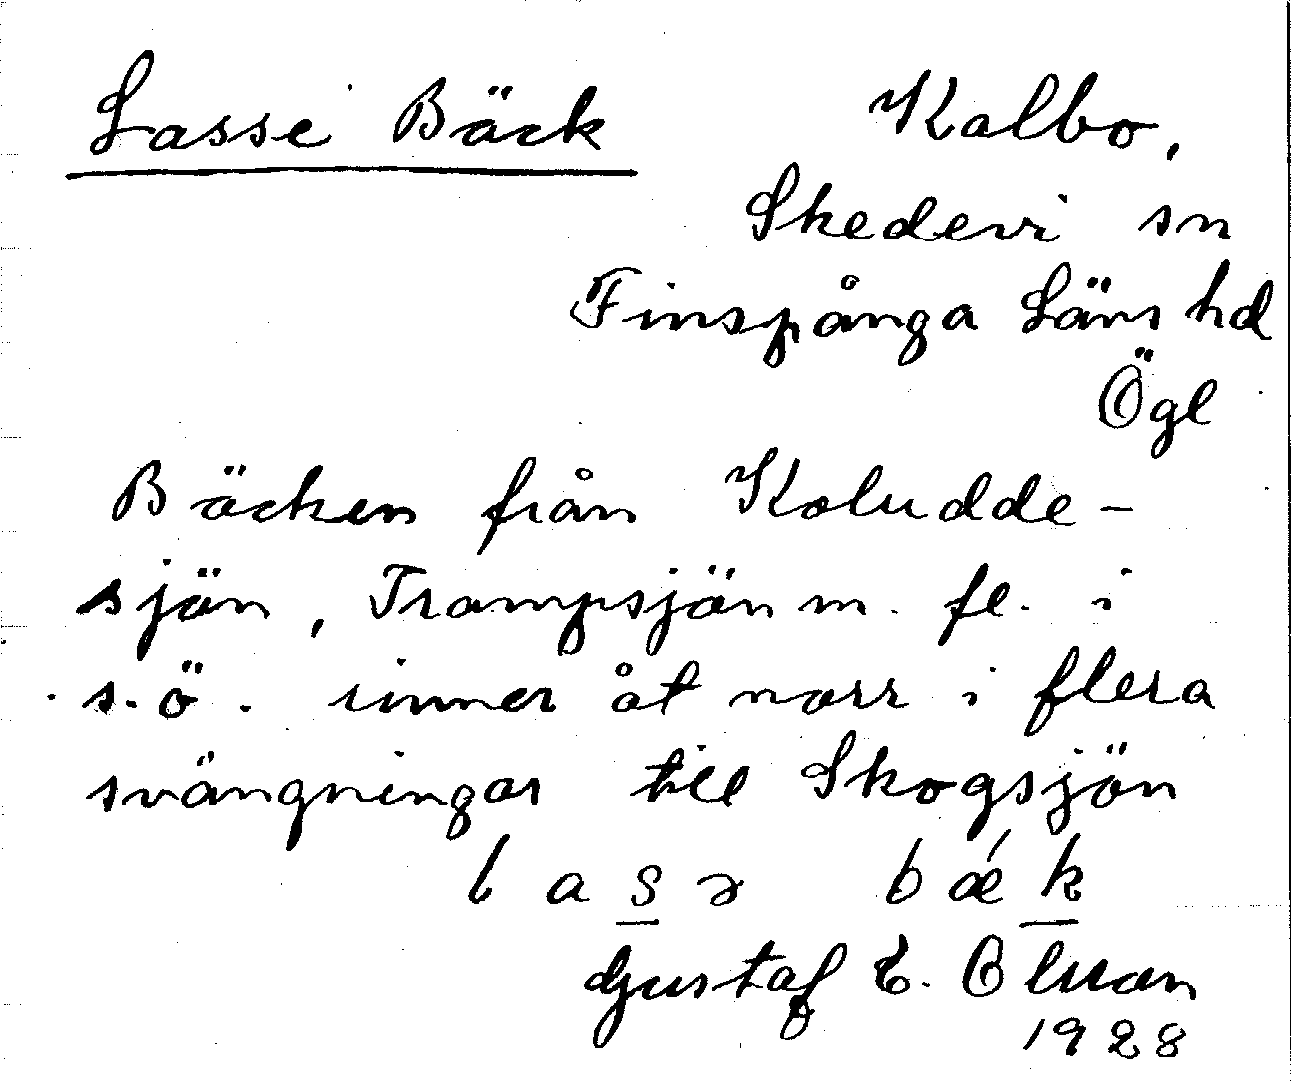 Lasse Bäck Kalbo,
Skedevi sn
Finspånga Läns hd
Ögl
Bäcken från Koludde-
sjön, Trampsjön m. fl. i
s.ö. rinner åt norr i flera
svängningar till Skogsjön
l a s ə b ǽ k
Gustaf E. Olsson
1928